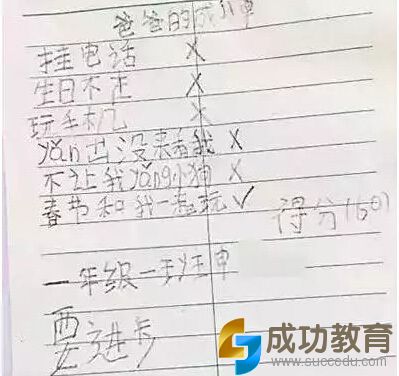 爸爸的成 单
挂电话 X
生日不在 X
玩手机 X
yǎn出没来看我 X
不让我yǎng小狗 X
春节和我一起玩 ✓
得分(60)
一年级一班
要进步
成功教育
www.succedu.com